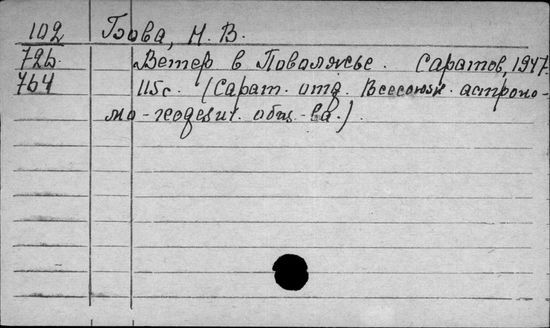 102 Бова, Н. В.
726. Ветер в Поволжье. Саратов, 1947.
764 115 с. (Сарат. отд. Всесоюзн. астроно-
мо-геодезич. общ-ва.).